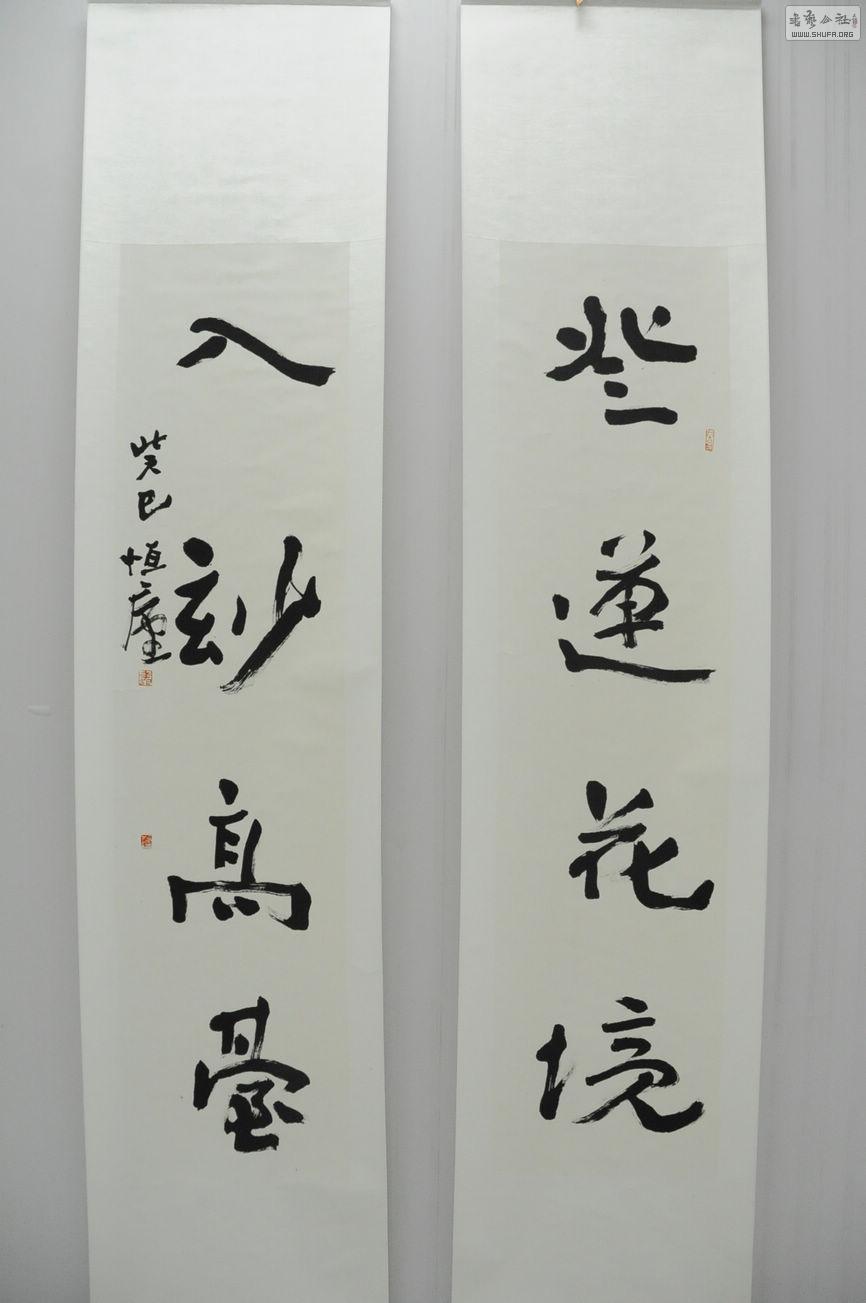 登蓮花境
入玅高臺
癸巳
恒
書藝公社
WWW.SHUFA.ORG